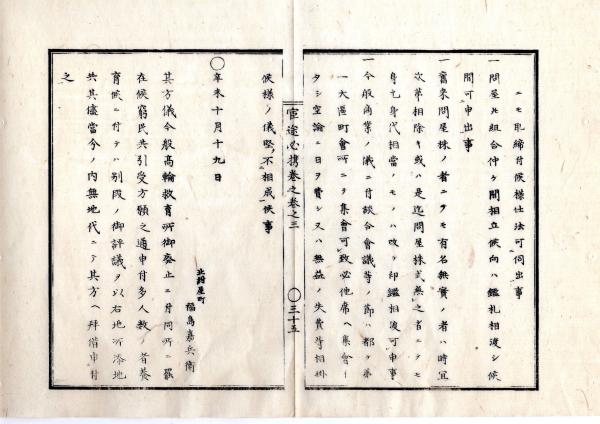 ニモ取締付候様仕法可伺出事
一問屋共組合仲ケ間相立候向ハ鑑札相渡シ候
間可申出事
一舊来問屋株ノ者ニテモ有名無實ノ者ハ時宜
次第相除キ或ハ是迄問屋株式無之者ニテモ
身元身代相當ノモノハ改テ印鑑相渡可申事
一今般商業ノ儀ニ付談合會議等ノ節ハ都テ第
一大區町會所ニテ集會可致必他席ヘ集會イ
タシ空論ニ日ヲ費シ又ハ無益ノ失費等相掛
官途必携巻之巻之三
○三十五
候様ノ儀堅ク不相成候事
○辛未十月十九日
北紺屋町
福島嘉兵衛
其方儀今般高輪救育所御廃止ニ付同所ニ罷
在候窮民共引受方願之通申付多人數ノ者養
育候ニ付テハ別段ノ御評議ヲ以右地所添地
共其儘當今ノ内無地代ニテ其方ヘ拝借申付
之